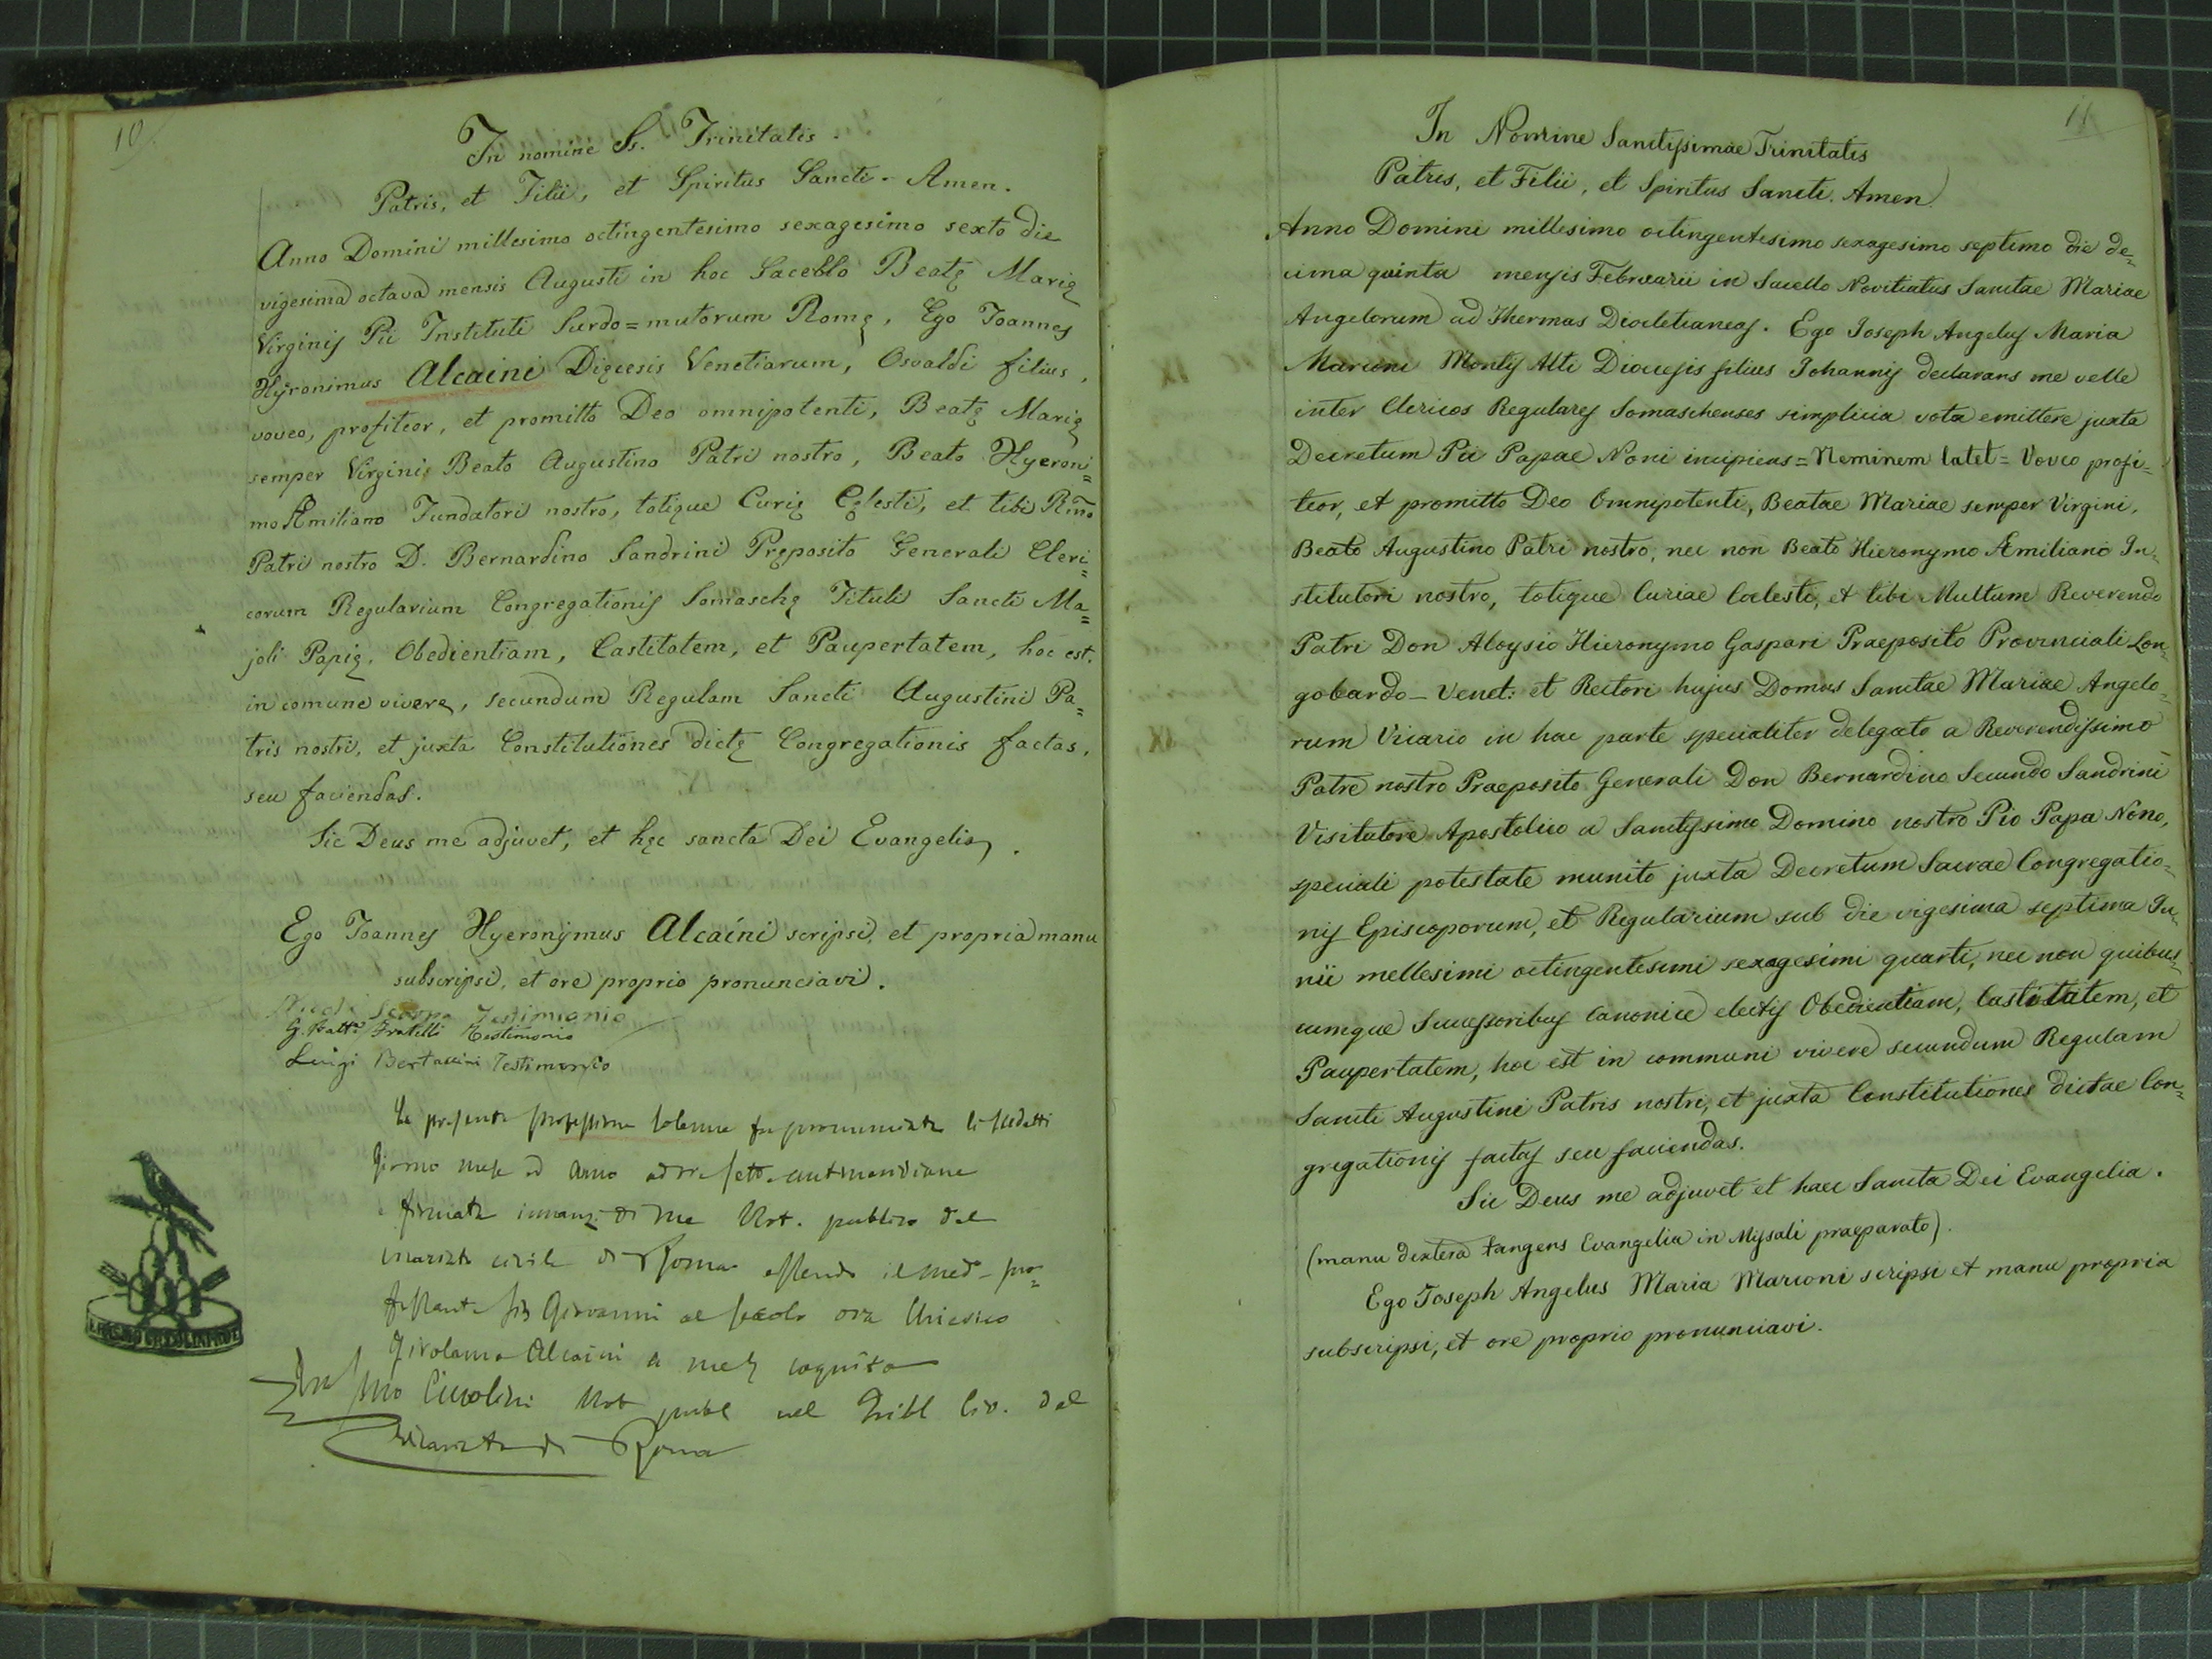 10
In nomine Ss. Trinitatis.
Patris, et Filii, et Spiritus Sancti. Amen.
Anno Domini millesimo octingentesimo sexagesimo sexto die
vigesima octava mensis Augusti in hoc Sacello Beatę Marię
Virginis Pii Instituti Surdo=mutorum Romę, Ego Joannes
Hyronimus Alcaini Dięcesis Venetiarum, Osvaldi filius,
voveo, profiteor, et promitto Deo omnipotenti, Beatę Marię
semper Virginis Beato Augustino Patri nostro, Beato Hyeroni=
mo Æmiliano Fundatori nostro, totique Curię Cęlesti, et tibi Rm̃o
Patri nostro D. Bernardino Sandrini Pręposito Generali Cleri=
corum Regularium Congregationis Somaschę Tituli Sancti Ma=
joli Papię, Obedientiam, Castitatem, et Paupertatem, hoc est.
in comune vivere, secundum Regulam Sancti Augustini Pa=
tris nostri, et juxta Constitutiones dictę Congregationis factas,
seu faciendas.
Sic Deus me adjuvet, et hęc sancta Dei Evangelia.
Ego Joannes Hyeronymus Alcaini scripsi, et propria manu
subscripsi, et ore proprio pronunciavi.
Testimonio
G. Fratelli Testimonio
Luigi Bertaccini Testimonio
La presente professione solenne fu pronunciata li suddetti
Giorno mese ed anno ad ore sette antimeridiane
firmata innanzi di me Not. pubblico del
vicariato civile di Roma essendo il med. pro=
fessante Sig Giovanni al secolo ora Chierico
Girolamo Alcaini a me cognito
Civolini Not publ nel Tribl Civ. del
Vicariato di Roma
11
In Nomine Sanctissimae Trinitatis
Patris, et Filii, et Spiritus Sancti. Amen.
Anno Domini millesimo octingentesimo sexagesimo septimo die de=
cima quinta mensis Februarii in Sacello Novitiatus Sanctae Mariae
Angelorum ad Thermas Diocletianeas. Ego Joseph Angelus Maria
Marconi Montis Alti Diocesis filius Johannis declarans me velle
inter Clericos Regulares Somaschenses simplicia vota emittere juxta
Decretum Pii Papae Noni incipiens=Neminem latet=Voveo profi=
teor, et promitto Deo Omnipotenti, Beatae Mariae semper Virgini,
Beato Augustino Patri nostro, nec non Beato Hieronymo Æmiliano In=
stitutori nostro, totique Curiae Coelesti, et tibi Multum Reverendo
Patri Don Aloysio Hieronymo Gaspari Praeposito Provinciali Lon=
gobardo-Venet: et Rectori hujus Domus Sanctae Mariae Angelo=
rum Vicario in hac parte specialiter delegato a Reverendissimo
Patre nostro Praeposito Generali Don Bernardino Secundo Sandrini
Visitatore Apostolico a Sanctissimo Domino nostro Pio Papa Nono,
speciali potestate munito juxta Decretum Sacrae Congregatio=
nis Episcoporum, et Regularium sub die vigesima septima Ju=
nii mellesimi octingentesimi sexagesimi quarti, nec non quibus=
cumque Successoribus canonice electis Obedientiam, Castitatem, et
Paupertatem, hoc est in communi vivere secundum Regulam
Sancti Augustini Patris nostri, et juxta Constitutiones dictae Con=
gregationis factas seu faciendas.
Sic Deus me adjuvet et haec Sancta Dei Evangelia.
(manu dextera tangens Evangelia in Missali praeparato).
Ego Joseph Angelus Maria Marconi scripsi et manu propria
subscripsi, et ore proprio pronunciavi.